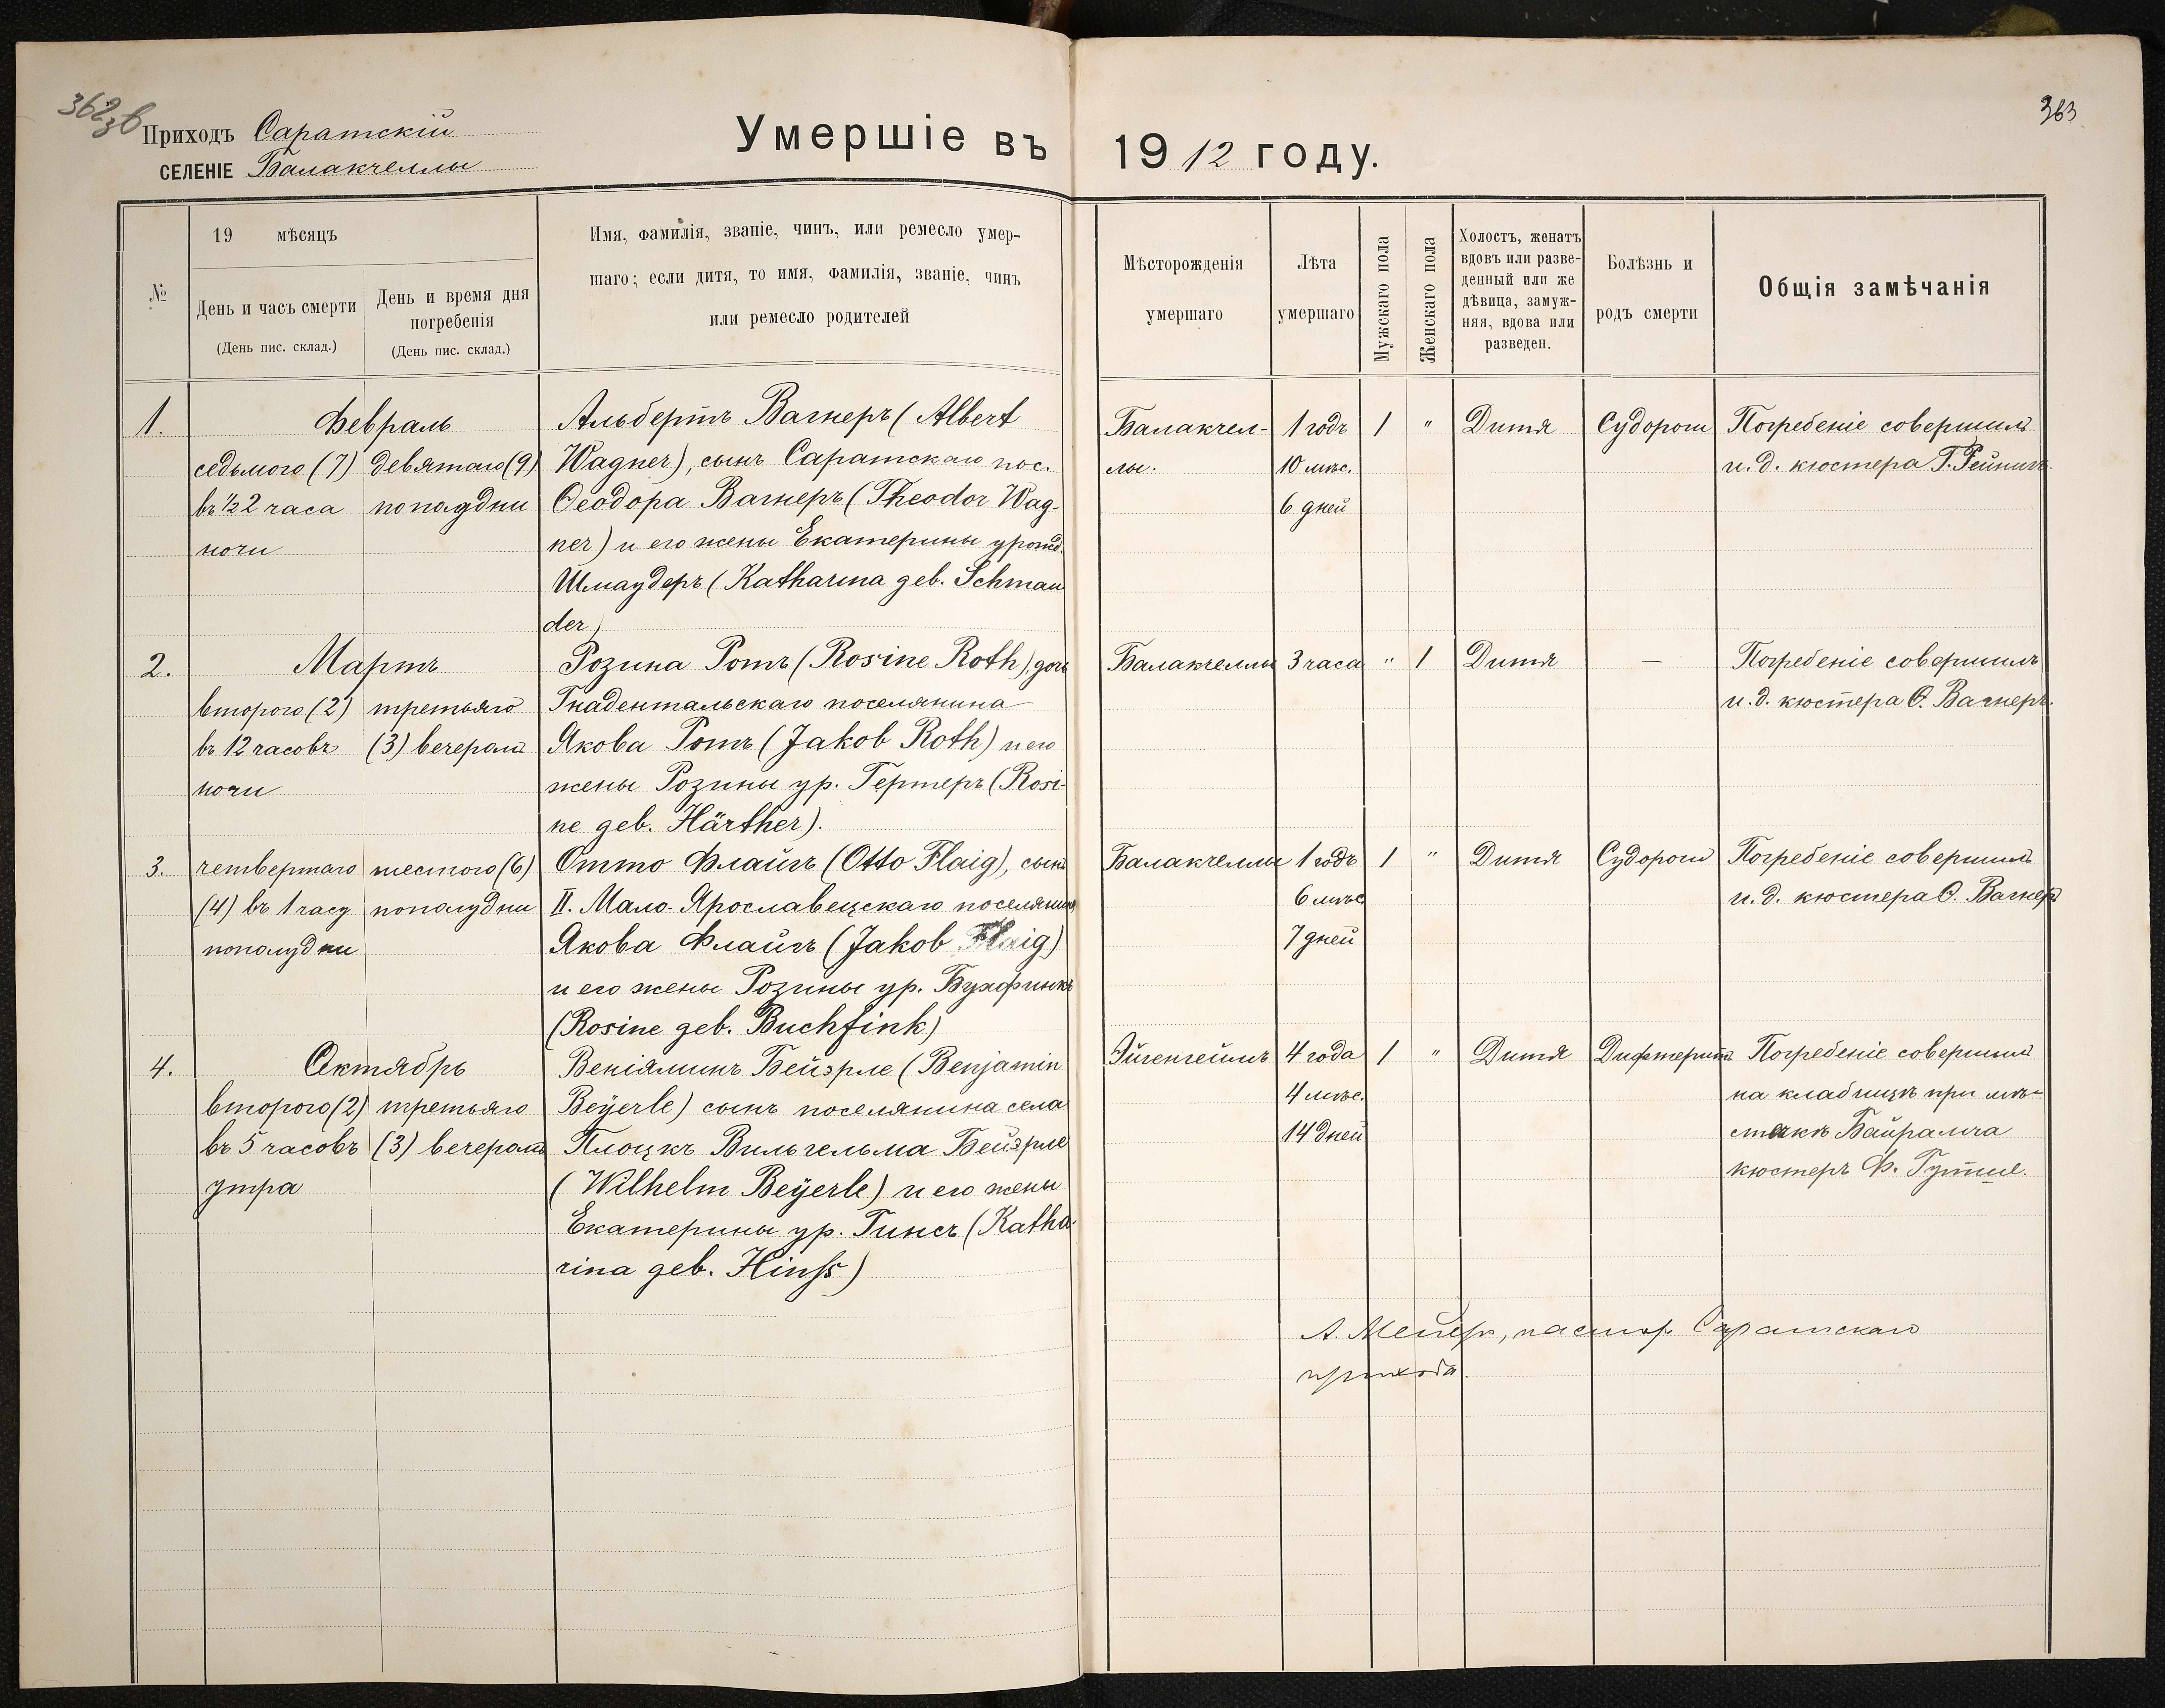 362 зв
363
Приходъ Саратскій
СЕЛЕНІЕ Балакчеллы
Умершіе въ 1912 году.
№
19 мѣсяцъ
День и часъ смерти
(День пис. склад.)
День и время дня
погребенія
(День пис. склад.)
Имя, фамилія, званіе, чинъ, или ремесло умер-
шаго; если дитя, то имя, фамилія, званіе, чинъ
или ремесло родителей
Мѣсторожденія
умершаго
Лѣта
умершаго
Мужскаго пола
Женскаго пола
Холостъ, женатъ
вдовъ или разве-
денный или же
дѣвица, замуж-
няя, вдова или
разведен.
Болѣзнь и
родъ смерти
Общія замѣчанія
1.
Февраль
седьмого (7)
въ ½ 2 часа
ночи
девятаго (9)
пополудни
Альбертъ Вагнеръ (Albert
Wagner), сынъ Саратскаго пос.
Ѳеодора Вагнеръ (Theodor Wag-
ner) и его жены Екатерины урожд.
Шмаудеръ (Katharina geb. Schmau
der)
Балакчел-
лы.
1 годъ
10 мѣс.
6 дней
1
"
Дитя
Судороги
Погребеніе совершилъ
и. д. кюстера Г. Рейнихъ.
2.
Мартъ
второго (2)
въ 12 часовъ
ночи
третьяго
(3) вечеромъ
Розина Ротъ (Rosine Roth), дочь
Гнадентальскаго поселянина
Якова Ротъ (Jakob Roth) и его
жены Розины ур. Гертеръ (Rosi-
ne geb. Härther).
Балакчеллы
3 часа
"
1
Дитя
—
Погребеніе совершилъ
и. д. кюстера Ѳ. Вагнеръ.
3.
четвертаго
(4) въ 1 часу
пополудни
шестого (6)
пополудни
Отто Флайгъ (Otto Flaig), сынъ
II. Мало-Ярославецскаго поселянина
Якова Флайгъ (Jakob Flaig)
и его жены Розины ур. Бухфинкъ
(Rosine geb. Buchfink)
Балакчеллы
1 годъ
6 мѣс.
7 дней
1
"
Дитя
Судороги
Погребеніе совершилъ
и. д. кюстера Ѳ. Вагнеръ
4.
Октябрь
второго (2)
въ 5 часовъ
утра
третьяго
(3) вечеромъ
Веніяминъ Бейэрле (Benjamin
Beÿerle) сынъ поселянина села
Плоцкъ Вильгельма Бейэрле
(Wilhelm Beÿerle) и его жены
Екатерины ур. Гинсъ (Katha-
rina geb. Hinß)
Эйгенгеймъ
4 года
4 мѣс.
14 дней
1
"
Дитя
Дифтеритъ
Погребеніе совершилъ
на кладбищѣ при мѣ-
стечкѣ Байрамча
кюстеръ Ф. Гутше.
А. Мейеръ, пасторъ Саратскаго
прихода.